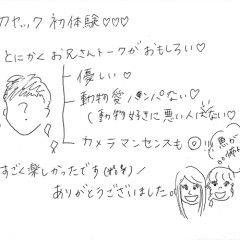 カヤック 初体験♡♡♡
とにかくお兄さんトークがおもしろい♡
優しい♡
動物愛ハンパない♡
(動物好きに悪い人はない♡
カメラマンセンスも◎
すごく楽しかったです
ありがとうございました。
魚が